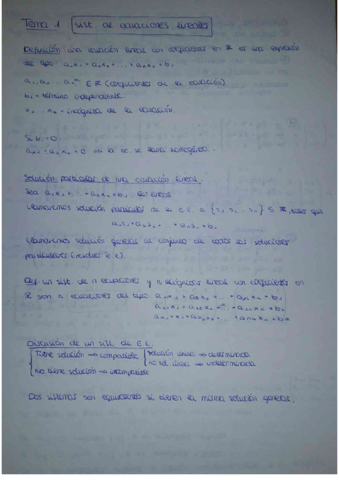 Tema 1 Sist. de ecuaciones lineales
Definición: una ecuación lineal con coeficientes en R es una expresión
de tipo a₁x₁ + a₂x₂ + ... + aₙxₙ = b₁
a₁, a₂ ... aₙ ∈ R (coeficientes de la ecuación)
b₁ = término independiente
x₁ ... xₙ = incógnitas de la ecuación
Si b₁ = 0
a₁x₁ + aₙxₙ = 0 la ec. se llama homogénea.
Solución particular de una ecuación lineal.
Sea a₁x₁ + ... + aₙxₙ = b₁ lineal
Llamaremos solución particular de la e.l. a
Llamaremos solución general al conjunto de todas las soluciones
particulares
Def un sist. de n ecuaciones y n incógnitas lineal con coeficientes en
R son n ecuaciones del tipo
Discusión de un sist. de E.L.
Tiene solución → compatible
solución única → determinada
∞ sol. → indeterminada
No tiene solución → incompatible
Dos sistemas son equivalentes si tienen la misma solución general.